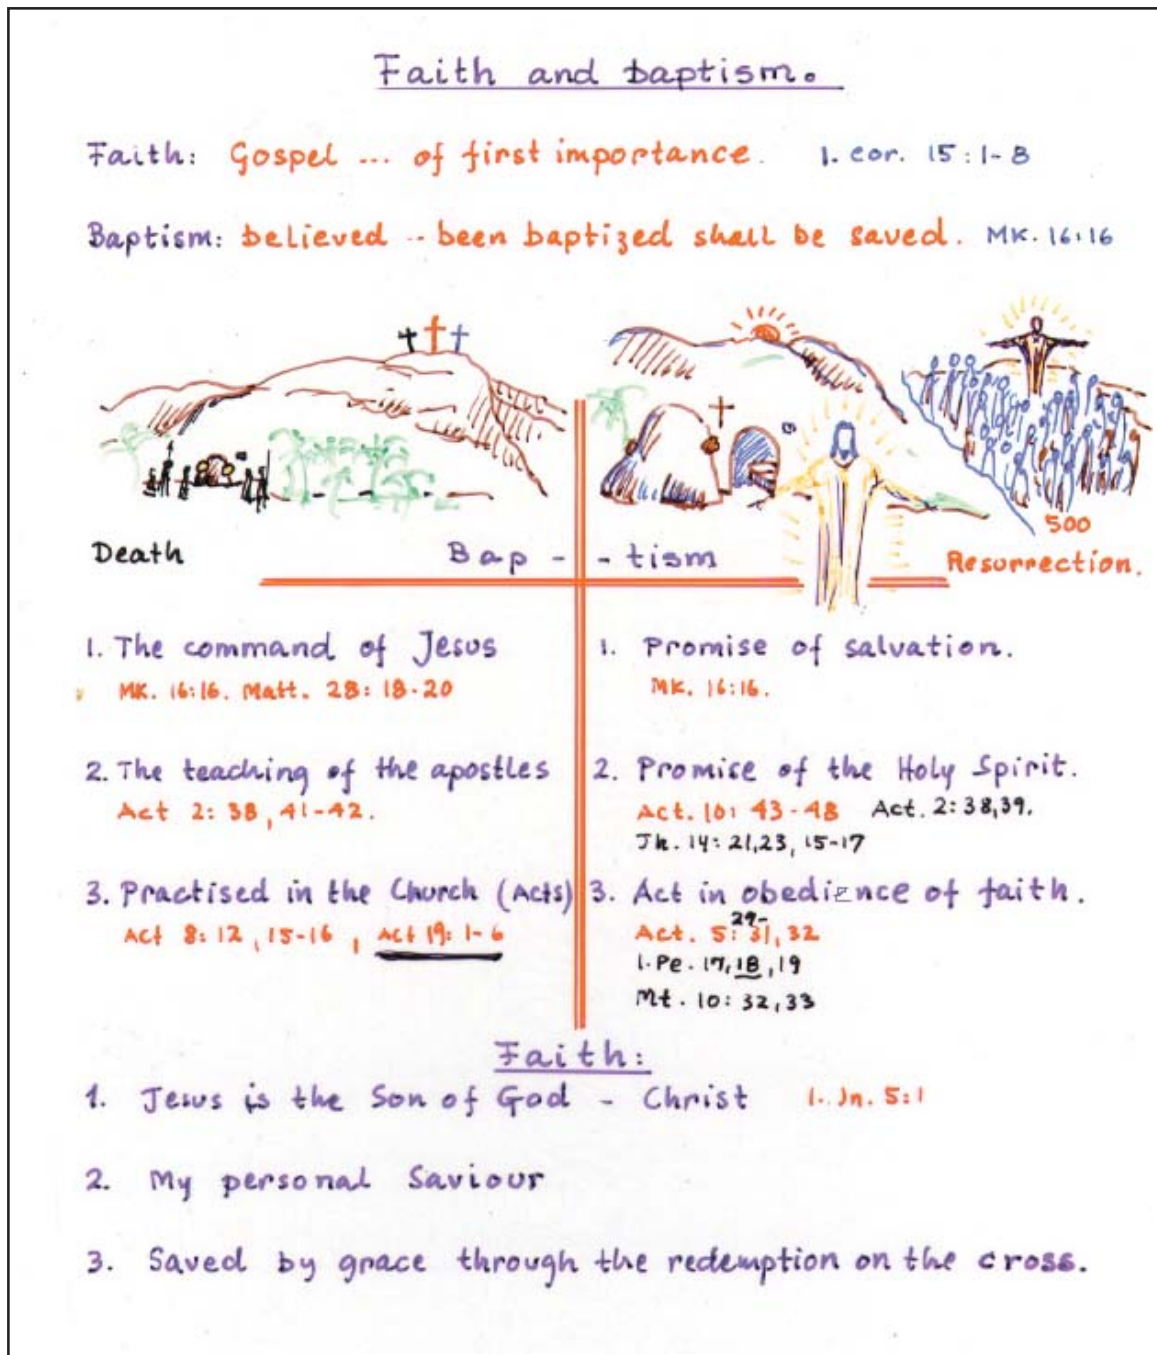 Faith and baptism.
Faith: Gospel ... of first importance. 1. cor. 15:1-8
Baptism: believed -- been baptized shall be saved. MK. 16:16
500
Death Bap - - tism Resurrection.
1. The command of Jesus
MK. 16:16. Matt. 28: 18-20
2. The teaching of the apostles
Act 2: 38, 41-42.
3. Practised in the Church (Acts)
Act 8: 12, 15-16, Act 19: 1-6
1. Promise of salvation.
Mk. 16:16.
2. Promise of the Holy Spirit.
Act. 10: 43-48 Act. 2: 38,39.
Jh. 14: 21,23, 15-17
3. Act in obedience of faith.
29-
Act. 5: 31, 32
1. Pe. 17, 18, 19
Mt. 10: 32, 33
Faith:
1. Jesus is the Son of God - Christ 1. Jn. 5:1
2. My personal Saviour
3. Saved by grace through the redemption on the cross.